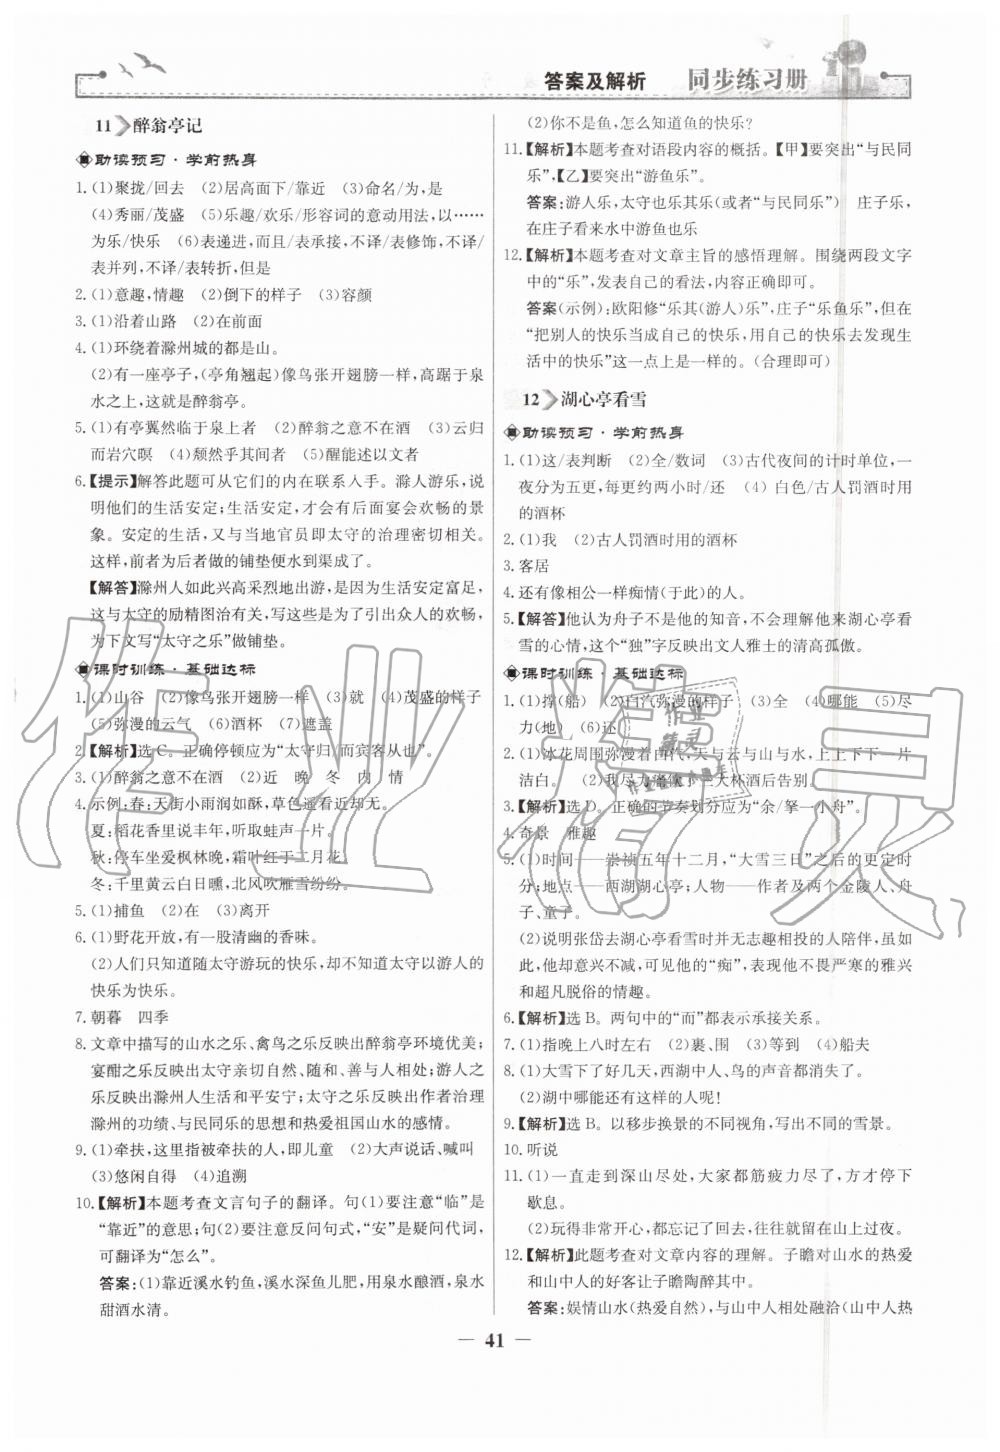 答案及解析 同步练习册
11 醉翁亭记
助读预习·学前热身
1. (1)聚拢/回去 (2)居高面下/靠近 (3)命名/为,是
(4)秀丽/茂盛 (5)乐趣/欢乐/形容词的意动用法,以……
为乐/快乐 (6)表递进,而且/表承接,不译/表修饰,不译/
表并列,不译/表转折,但是
2. (1)意趣,情趣 (2)倒下的样子 (3)容颜
3. (1)沿着山路 (2)在前面
4. (1)环绕着滁州城的都是山。
(2)有一座亭子,(亭角翘起)像鸟张开翅膀一样,高踞于泉
水之上,这就是醉翁亭。
5. (1)有亭翼然临于泉上者 (2)醉翁之意不在酒 (3)云归
而岩穴暝 (4)颓然乎其间者 (5)醒能述以文者
6.【提示】解答此题可从它们的内在联系入手。滁人游乐,说
明他们的生活安定;生活安定,才会有后面宴会欢畅的景
象。安定的生活,又与当地官员即太守的治理密切相关。
这样,前为后者做的铺垫便水到渠成了。
【解答】滁州人如此兴高采烈地出游,是因为生活安定富足,
这与太守的励精图治有关,写这些是为了引出众人的欢畅,
为下文写“太守之乐”做铺垫。
课时训练·基础达标
1. (1)山谷 (2)像鸟张开翅膀一样 (3)就 (4)茂盛的样子
(5)弥漫的云气 (6)酒杯 (7)遮盖
2.【解析】选C。正确停顿应为“太守归/而宾客从也”。
3. (1)醉翁之意不在酒 (2)近 晚 冬 内 情
4. 示例:春:天街小雨润如酥,草色遥看近却无。
夏:稻花香里说丰年,听取蛙声一片。
秋:停车坐爱枫林晚,霜叶红于二月花。
冬:千里黄云白日曛,北风吹雁雪纷纷。
5. (1)捕鱼 (2)在 (3)离开
6. (1)野花开放,有一股清幽的香味。
(2)人们只知道随太守游玩的快乐,却不知道太守以游人的
快乐为快乐。
7. 朝暮 四季
8. 文章中描写的山水之乐、禽鸟之乐反映出醉翁亭环境优美;
宴酣之乐反映出太守亲切自然、随和、善与人相处;游人之
乐反映出滁州人生活和平安宁;太守之乐反映出作者治理
滁州的功绩、与民同乐的思想和热爱祖国山水的感情。
9. (1)牵扶,这里指被牵扶的人,即儿童 (2)大声说话、喊叫
(3)悠闲自得 (4)追溯
10.【解析】本题考查文言句子的翻译。句(1)要注意“临”是
“靠近”的意思;句(2)要注意反问句式,“安”是疑问代词,
可翻译为“怎么”。
答案:(1)靠近溪水钓鱼,溪水深鱼儿肥,用泉水酿酒,泉水
甜酒水清。
(2)你不是鱼,怎么知道鱼的快乐?
11.【解析】本题考查对语段内容的概括。【甲】要突出“与民同
乐”,【乙】要突出“游鱼乐”。
答案:游人乐,太守也乐其乐(或者“与民同乐”) 庄子乐,
在庄子看来水中游鱼也乐
12.【解析】本题考查对文章主旨的感悟理解。围绕两段文字
中的“乐”,发表自己的看法,内容正确即可。
答案(示例):欧阳修“乐其(游人)乐”,庄子“乐鱼乐”,但在
“把别人的快乐当成自己的快乐,用自己的快乐去发现生
活中的快乐”这一点上是一样的。(合理即可)
12 湖心亭看雪
助读预习·学前热身
1. (1)这/表判断 (2)全/数词 (3)古代夜间的计时单位,一
夜分为五更,每更约两小时/还 (4)白色/古人罚酒时用
的酒杯
2. (1)我 (2)古人罚酒时用的酒杯
3. 客居
4. 还有像相公一样痴情(于此)的人。
5.【解答】他认为舟子不是他的知音,不会理解他来湖心亭看
雪的心情,这个“独”字反映出文人雅士的清高孤傲。
课时训练·基础达标
1. (1)撑(船) (2)白汽弥漫的样子 (3)全 (4)哪能 (5)尽
力(地) (6)还
2. (1)冰花周围弥漫着白汽,天与云与山与水,上上下下一片
洁白。 (2)我尽力喝了三大杯酒后告别。
3.【解析】选D。正确的节奏划分应为“余/拏一小舟”。
4. 奇景 雅趣
5. (1)时间——崇祯五年十二月,“大雪三日”之后的更定时
分;地点——西湖湖心亭;人物——作者及两个金陵人、舟
子、童子。
(2)说明张岱去湖心亭看雪时并无志趣相投的人陪伴,虽如
此,他却意兴不减,可见他的“痴”,表现他不畏严寒的雅兴
和超凡脱俗的情趣。
6.【解析】选B。两句中的“而”都表示承接关系。
7. (1)指晚上八时左右 (2)裹、围 (3)等到 (4)船夫
8. (1)大雪下了好几天,西湖中人、鸟的声音都消失了。
(2)湖中哪能还有这样的人呢!
9.【解析】选B。以移步换景的不同视角,写出不同的雪景。
10. 听说
11. (1)一直走到深山尽处,大家都筋疲力尽了,方才停下
歇息。
(2)玩得非常开心,都忘记了回去,往往就留在山上过夜。
12.【解析】此题考查对文章内容的理解。子瞻对山水的热爱
和山中人的好客让子瞻陶醉其中。
答案:娱情山水(热爱自然),与山中人相处融洽(山中人热
— 41 —
作业精灵
作业
精灵